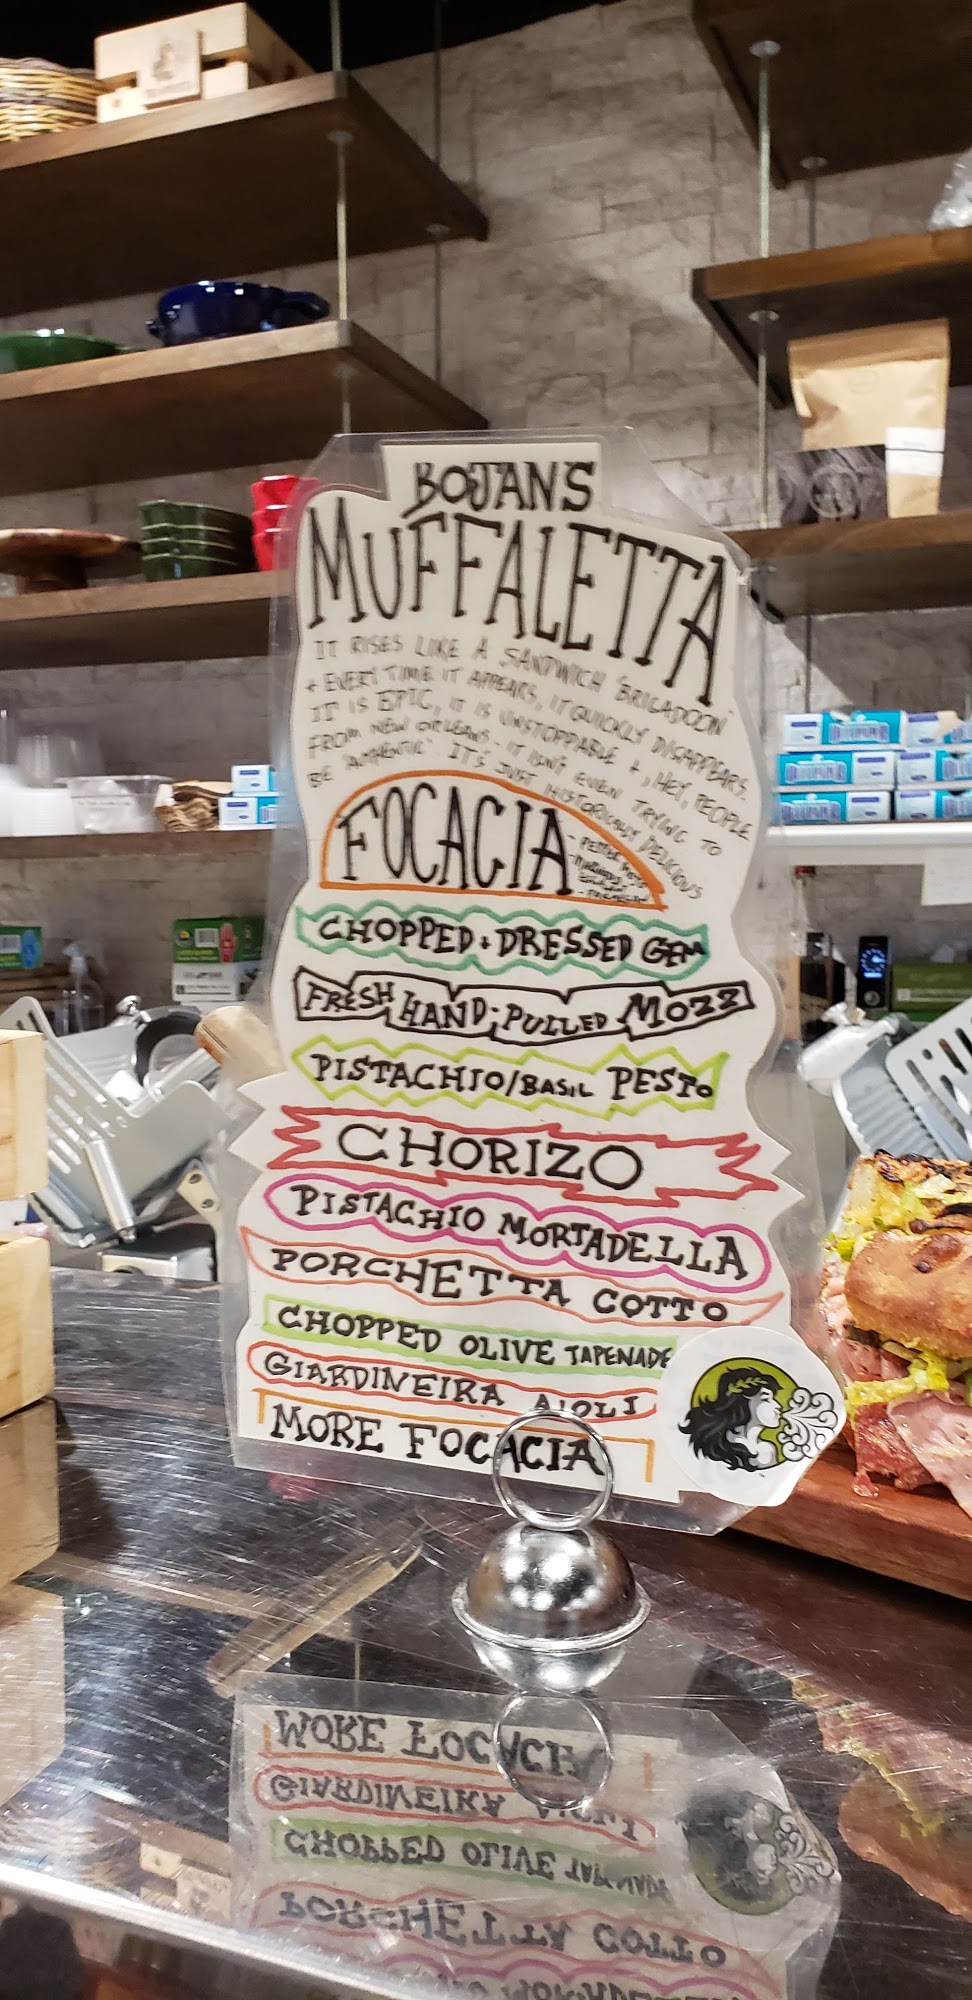 BOJAN'S
MUFFALETTA
IT RISES LIKE A SANDWICH 'BRIGADOON'
+ EVERY TIME IT APPEARS, IT QUICKLY DISAPPEARS.
IT IS EPIC, IT IS UNSTOPPABLE +, HEY, PEOPLE
FROM NEW ORLEANS - IT ISN'T EVEN TRYING TO
BE 'AUTHENTIC'. IT'S JUST HISTORICALLY DELICIOUS
FOCACIA
CHOPPED + DRESSED GEM
FRESH HAND-PULLED MOZZ
PISTACHIO/BASIL PESTO
CHORIZO
PISTACHIO MORTADELLA
PORCHETTA COTTO
CHOPPED OLIVE TAPENADE
GIARDINEIRA AIOLI
MORE FOCACIA